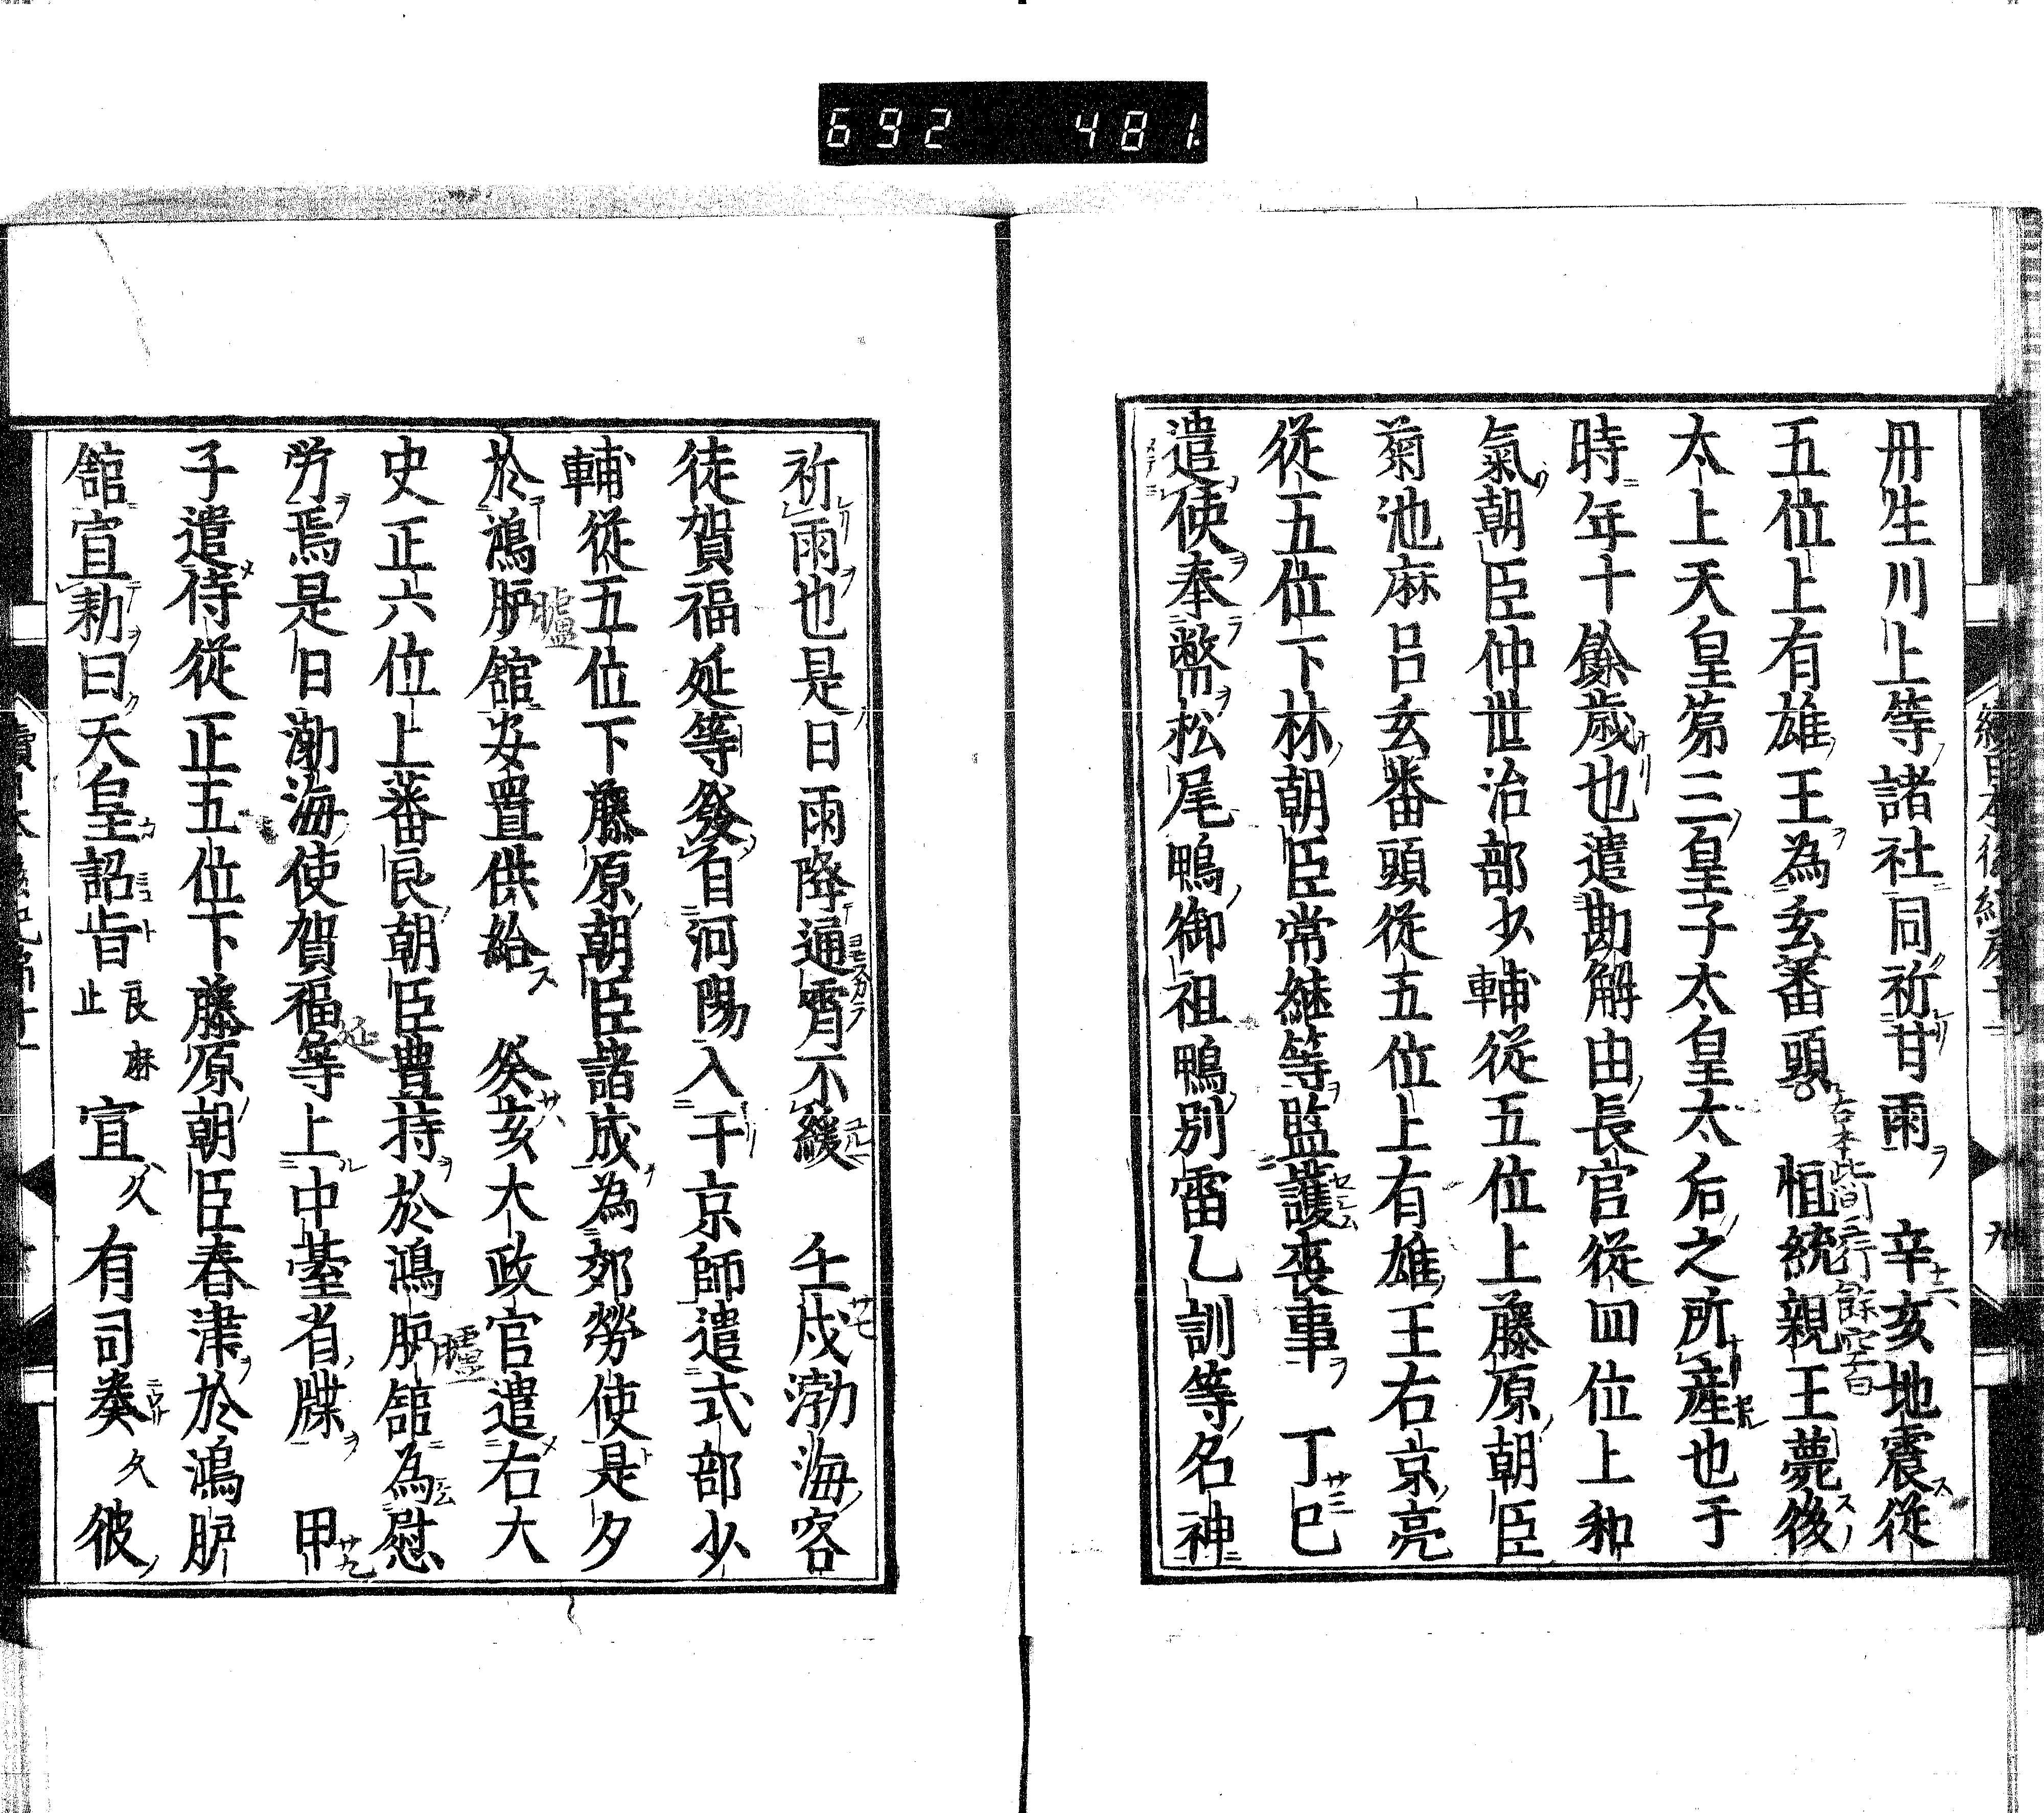 692 481
丹生川上等諸社同祈甘雨 辛亥地震從
五位上有雄王為玄蕃頭 恒統親王薨後
太上天皇第三皇子太皇太后之所産也于
時年十餘歳也遣勘解由長官從四位上和
氣朝臣仲世治部少輔從五位上藤原朝臣
菊池麻呂玄蕃頭從五位上有雄王右京亮
從五位下林朝臣常継等監護喪事 丁巳
遣使奉幣松尾鴨御祖鴨別雷乙訓等名神
祈雨也是日雨降通宵不緩 壬戌渤海客
徒賀福延等發自河陽入于京師遣式部少
輔從五位下藤原朝臣諸成為郊勞使是夕
於鴻胪舘安置供給 癸亥太政官遣右大
史正六位上蕃良朝臣豊持於鴻胪舘為慰
労焉是日渤海使賀福等上中臺省牒 甲
子遣侍從正五位下藤原朝臣春津於鴻胪
舘宣勅曰天皇詔旨良麻止宣久有司奏久彼